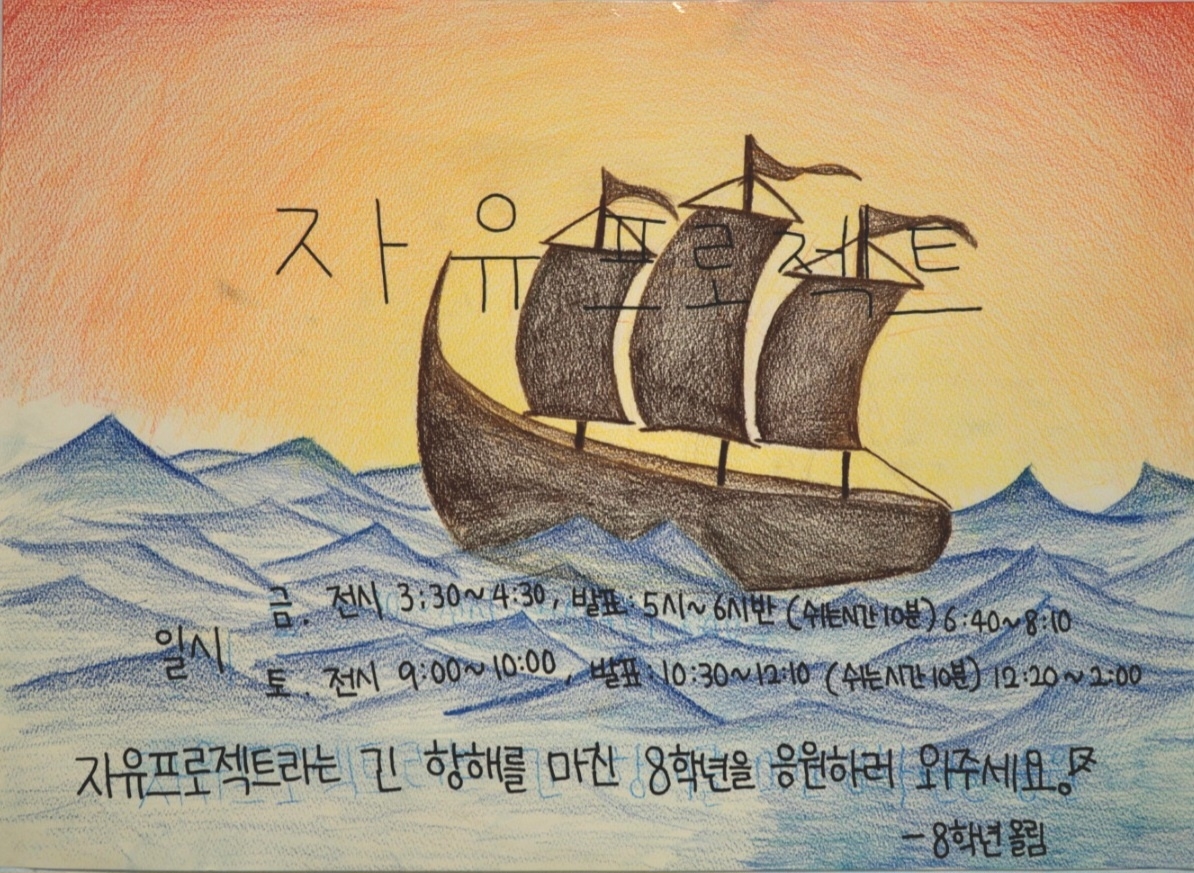 자유프로젝트
일시
금. 전시 3:30~4:30, 발표: 5시~6시반 (쉬는시간 10분) 6:40~8:10
토. 전시 9:00~10:00, 발표: 10:30~12:10 (쉬는시간 10분) 12:20~2:00
자유프로젝트라는 긴 항해를 마친 8학년을 응원하러 와주세요!
-8학년 올림